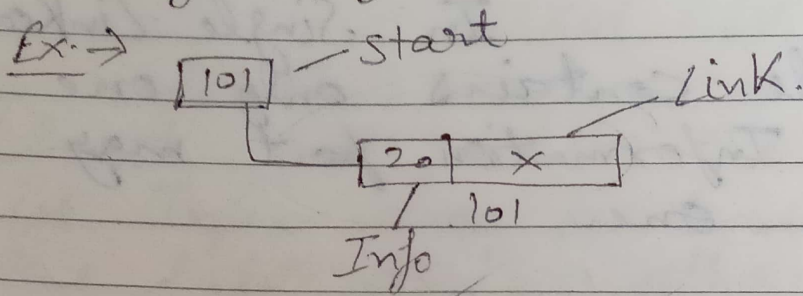 Ex. → 101 start
Link.
20 X
101
Info